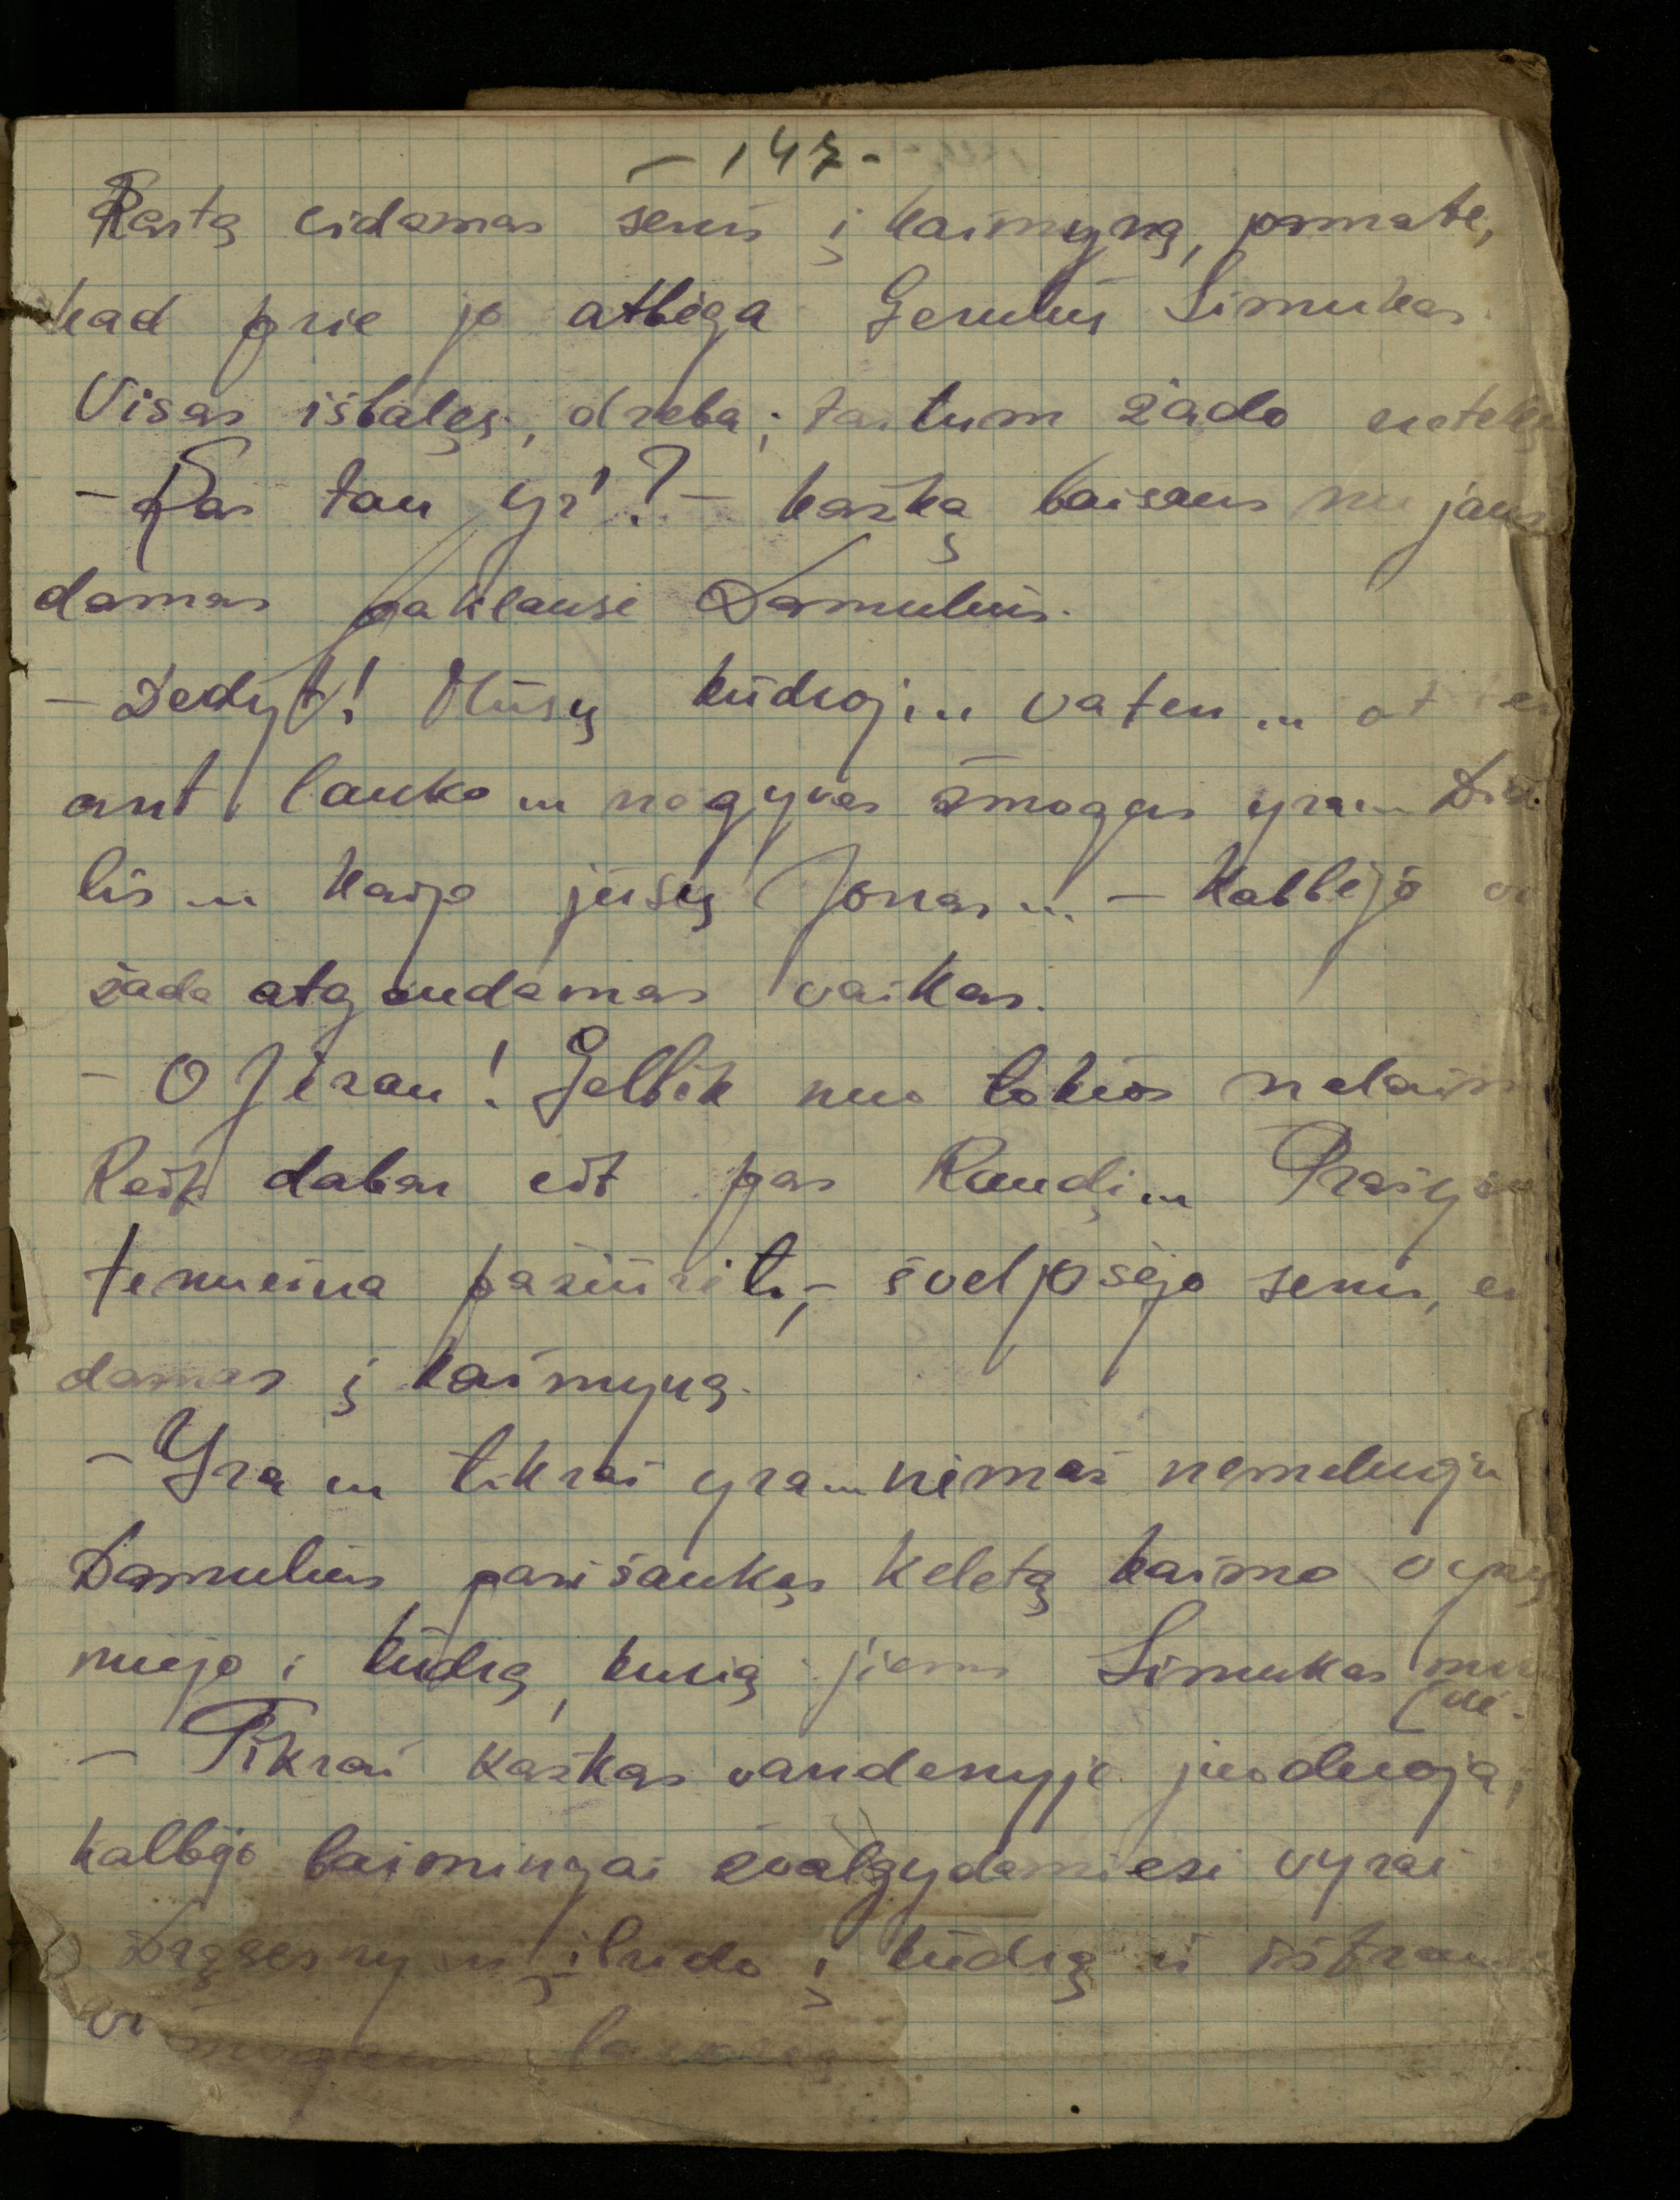 - 147 -
Kartą eidamas senis į kaimyną, pamatė,
kad prie jo atbėga Gerulių Simukas.
Visas išbalęs, dreba, tartum žado netekęs
- Kas tau yr'? - kažką baisaus nujaus
damas paklausė Damulius.
- Dėdyt! Mūsų kūdroj... vaten... at ten
ant lauko... negyvas žmogus yra... Did
lis... kaip jūsų Jonas... - kalbėjo vos
žadą atgaudamas vaikas.
- O Jėzau! Gelbėk nuo tokios nelaim
Reik dabar eit pas Raudį...
tenueina pažiūrėti, - švelpsėjo senis, ei
damas į kaimyną.
- Yra... tikrai yra... nėmaž nemeluoju
Damulius, pasišaukęs keletą kaimo vyrų
nuėjo į kūdrą, kurią jiems Simukas nuro
(dė.
- Tikrai kažkas vandenyje juoduoja,
kalbėjo baimingai žvalgydamiesi vyrai
įbrido į kūdrą ir ištrau